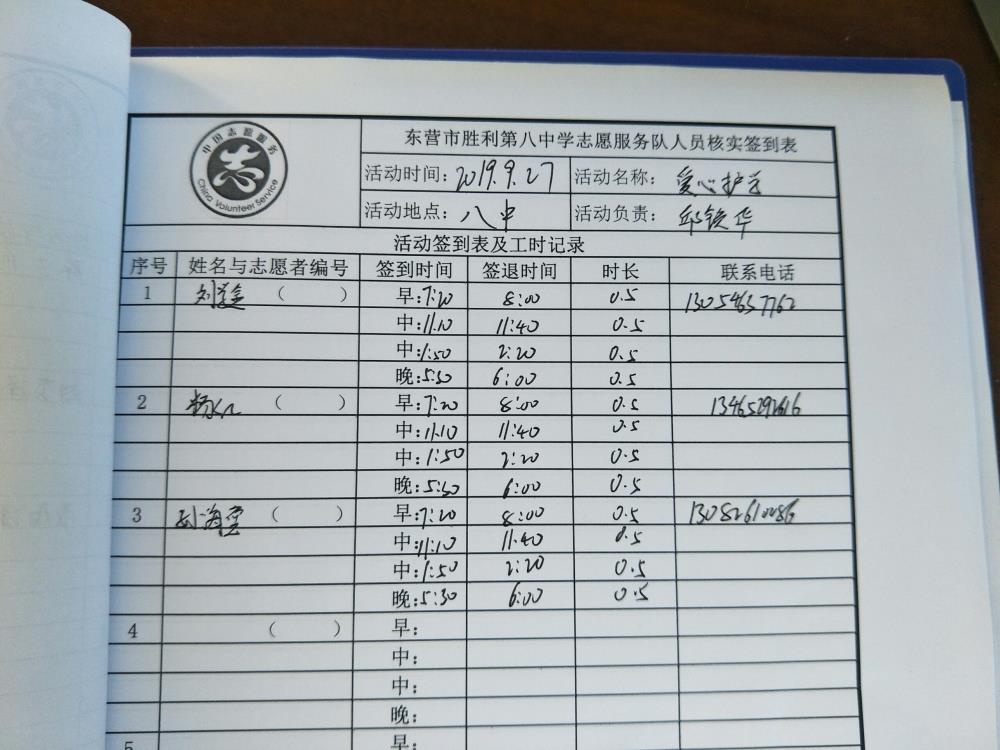 中国志愿服务
China Volunteer Service
东营市胜利第八中学志愿服务队人员核实签到表
活动时间：2019.9.27 活动名称：爱心护学
活动地点：八中 活动负责：邱铁华
活动签到表及工时记录
序号 姓名与志愿者编号 签到时间 签退时间 时长 联系电话
1 （ ） 早：7:20 8:00 0.5 13054657762
中：11:10 11:40 0.5
中：1:50 2:20 0.5
晚：5:30 6:00 0.5
2 杨红 （ ） 早：7:20 8:00 0.5 13465292616
中：11:10 11:40 0.5
中：1:50 2:20 0.5
晚：5:30 6:00 0.5
3 （ ） 早：7:20 8:00 0.5
中：11:10 11:40 0.5
中：1:50 2:20 0.5
晚：5:30 6:00 0.5
4 （ ） 早：
中：
中：
晚：
5 早：